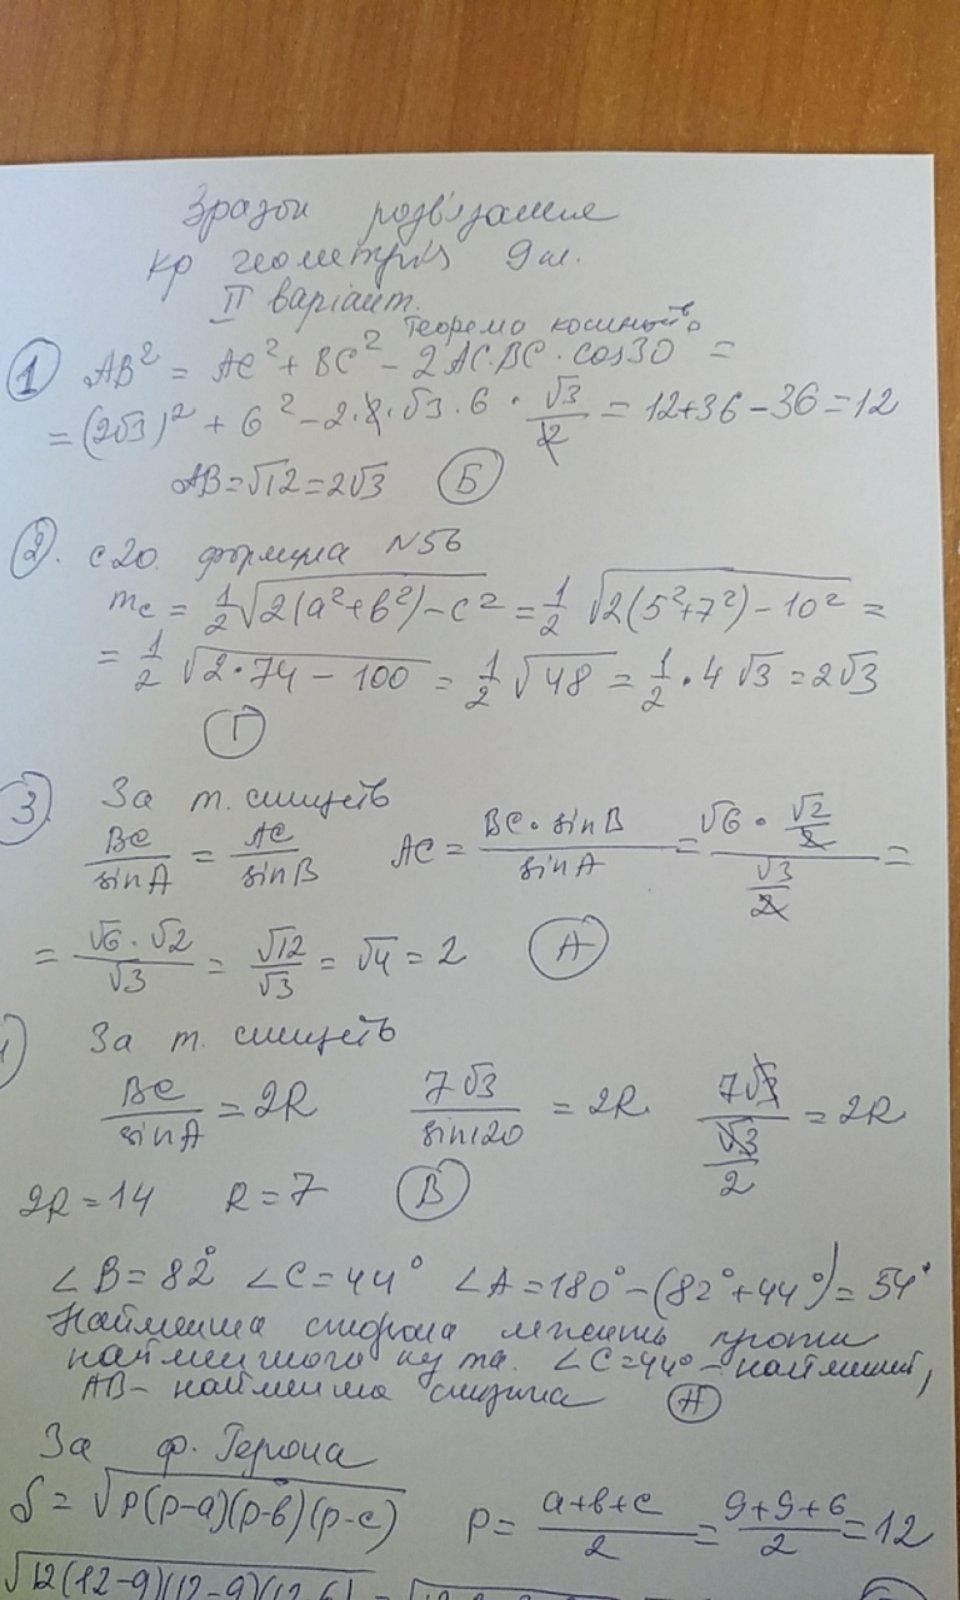 Зразок розв'язання
кр геометрія 9 кл.
II варіант.
Теорема косинусів
① AB² = AC² + BC² - 2AC·BC·cos30° =
= (2√3)² + 6² - 2·2·√3·6·√3/2 = 12+36-36=12
AB=√12=2√3 Б
②. с20. формула N56
m_c = 1/2√(2(a²+b²)-c²) = 1/2 √(2(5²+7²)-10²) =
= 1/2 √(2·74-100) = 1/2 √48 = 1/2 · 4√3 = 2√3
Г
3. За т. синусів
BC/sinA = AC/sinB AC = BC·sinB/sinA = (√6 · √2/2)/(√3/2) =
= √6·√2/√3 = √12/√3 = √4 = 2 А
За т. синусів
BC/sinA = 2R 7√3/sin120 = 2R 7√3/(√3/2) = 2R
2R=14 R=7 В
∠B=82° ∠C=44° ∠A=180°-(82°+44°)=54°
Найменша сторона лежить проти
найменшого кута. ∠C=44° - найменший,
AB- найменша сторона А
За ф. Герона
S = √(p(p-a)(p-b)(p-c)) p = (a+b+c)/2 = (9+9+6)/2 = 12
√(12(12-9)(12-9)(12-6)) =